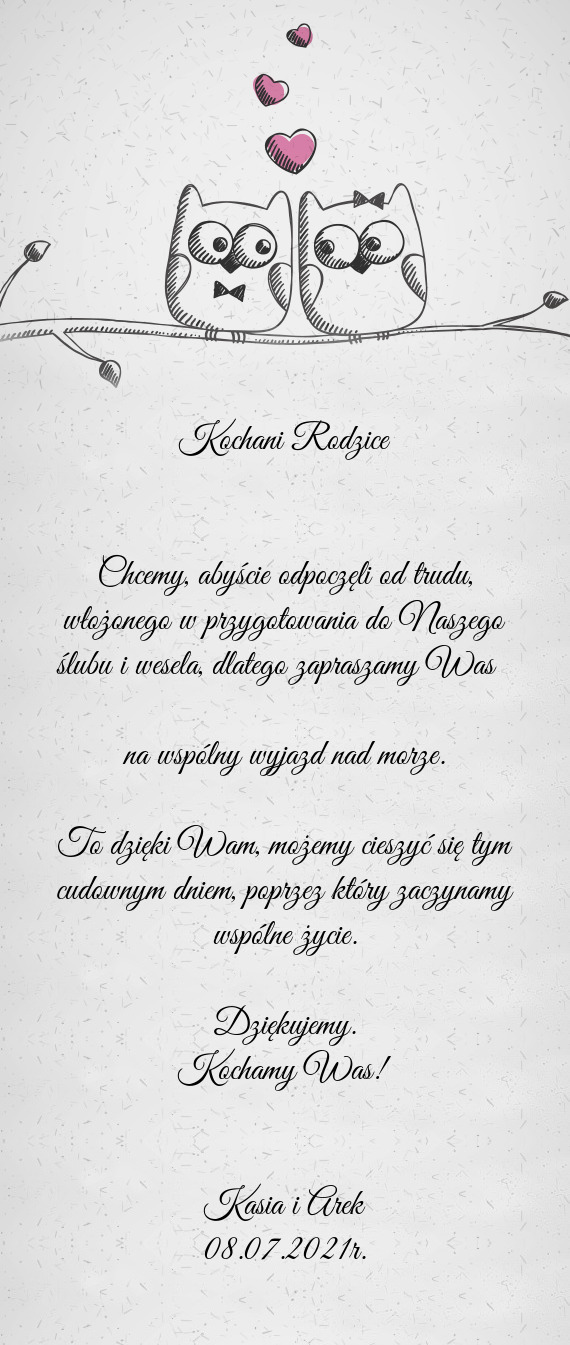 Kochani Rodzice
Chcemy, abyście odpoczęli od trudu,
włożonego w przygotowania do Naszego
ślubu i wesela, dlatego zapraszamy Was
na wspólny wyjazd nad morze.
To dzięki Wam, możemy cieszyć się tym
cudownym dniem, poprzez który zaczynamy
wspólne życie.
Dziękujemy.
Kochamy Was!
Kasia i Arek
08.07.2021r.